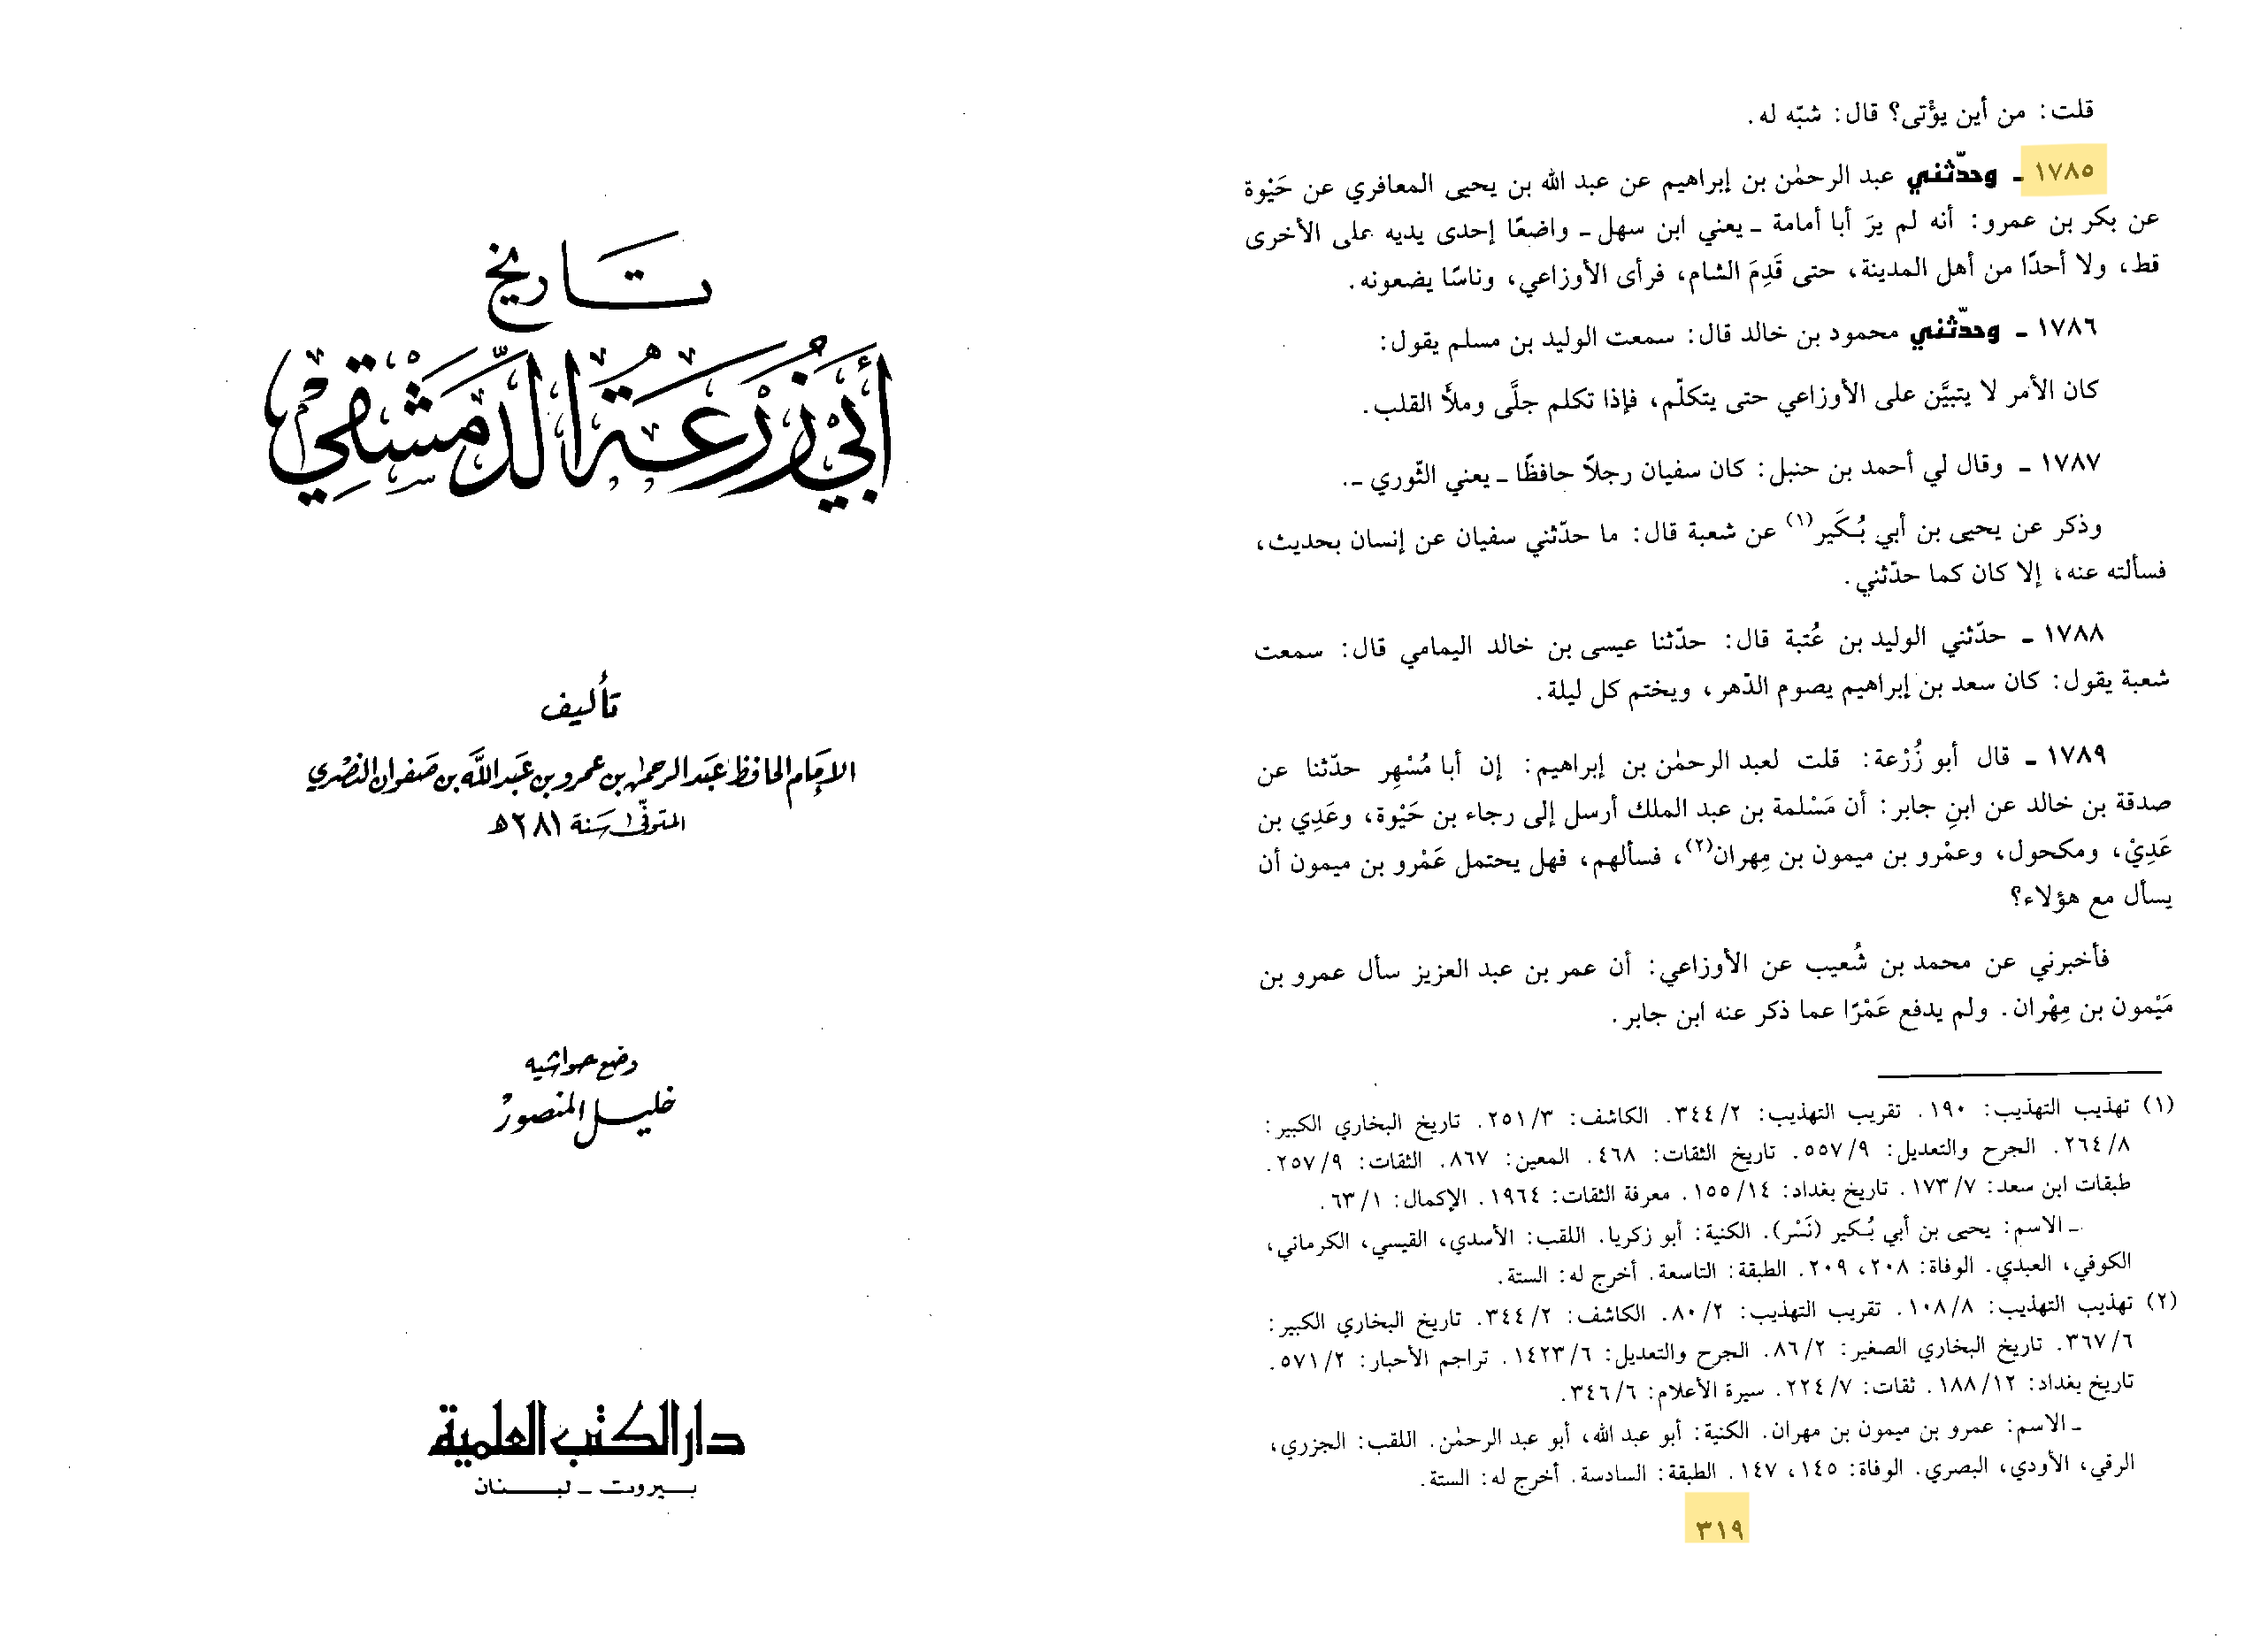 قلت: من أين يؤْتى؟ قال: شبّه له.
١٧٨٥ ـ وحدّثني عبد الرحمٰن بن إبراهيم عن عبد الله بن يحيى المعافري عن حَيْوة
عن بكر بن عمرو: أنه لم يرَ أبا أمامة ـ يعني ابن سهل ـ واضعًا إحدى يديه على الأخرى
قط، ولا أحدًا من أهل المدينة، حتى قَدِمَ الشام، فرأى الأوزاعي، وناسًا يضعونه.
١٧٨٦ ـ وحدّثني محمود بن خالد قال: سمعت الوليد بن مسلم يقول:
كان الأمر لا يتبيَّن على الأوزاعي حتى يتكلّم، فإذا تكلم جلَّى وملأَ القلب.
١٧٨٧ ـ وقال لي أحمد بن حنبل: كان سفيان رجلاً حافظًا ـ يعني الثّوري ـ.
وذكر عن يحيى بن أبي بُكَير(١) عن شعبة قال: ما حدّثني سفيان عن إنسان بحديث،
فسألته عنه، إلا كان كما حدّثني.
١٧٨٨ ـ حدّثني الوليد بن عُتبة قال: حدّثنا عيسى بن خالد اليمامي قال: سمعت
شعبة يقول: كان سعد بن إبراهيم يصوم الدّهر، ويختم كل ليلة.
١٧٨٩ ـ قال أبو زُرْعة: قلت لعبد الرحمٰن بن إبراهيم: إن أبا مُسْهِر حدّثنا عن
صدقة بن خالد عن ابنِ جابر: أن مَسْلمة بن عبد الملك أرسل إلى رجاء بن حَيْوة، وعَدِي بن
عَدِيْ، ومكحول، وعمْرو بن ميمون بن مِهران(٢)، فسألهم، فهل يحتمل عَمْرو بن ميمون أن
يسأل مع هؤلاء؟
فأخبرني عن محمد بن شُعيب عن الأوزاعي: أن عمر بن عبد العزيز سأل عمرو بن
مَيْمون بن مِهْران. ولم يدفع عَمْرًا عما ذكر عنه ابن جابر.
(١) تهذيب التهذيب: ١٩٠. تقريب التهذيب: ٣٤٤/٢. الكاشف: ٢٥١/٣. تاريخ البخاري الكبير:
٢٦٤/٨. الجرح والتعديل: ٥٥٧/٩. تاريخ الثقات: ٤٦٨. المعين: ٨٦٧. الثقات: ٢٥٧/٩.
طبقات ابن سعد: ١٧٣/٧. تاريخ بغداد: ١٥٥/١٤. معرفة الثقات: ١٩٦٤. الإكمال: ٦٣/١.
ـ الاسم: يحيى بن أبي بُكير (نَسْر). الكنية: أبو زكريا. اللقب: الأسدي، القيسي، الكرماني،
الكوفي، العبدي. الوفاة: ٢٠٨، ٢٠٩. الطبقة: التاسعة. أخرج له: الستة.
(٢) تهذيب التهذيب: ١٠٨/٨. تقريب التهذيب: ٨٠/٢. الكاشف: ٣٤٤/٢. تاريخ البخاري الكبير:
٣٦٧/٦. تاريخ البخاري الصغير: ٨٦/٢. الجرح والتعديل: ١٤٢٣/٦. تراجم الأحبار: ٥٧١/٢.
تاريخ بغداد: ١٨٨/١٢. ثقات: ٢٢٤/٧. سيرة الأعلام: ٣٤٦/٦.
ـ الاسم: عمرو بن ميمون بن مهران. الكنية: أبو عبد الله، أبو عبد الرحمٰن. اللقب: الجزري،
الرقي، الأودي، البصري. الوفاة: ١٤٥، ١٤٧. الطبقة: السادسة. أخرج له: الستة.
٣١٩
تاريخ
أبي زُرْعَة الدِّمَشْقي
تأليف
الإمَام الحَافظ عَبد الرحمٰن بن عمرو بن عَبد اللَّه بن صَفوان النصْري
المتوفّى سَنة ٢٨١ھ
وضع حواشيه
خليل المنصور
دار الكتب العلمية
بيروت ـ لبنان